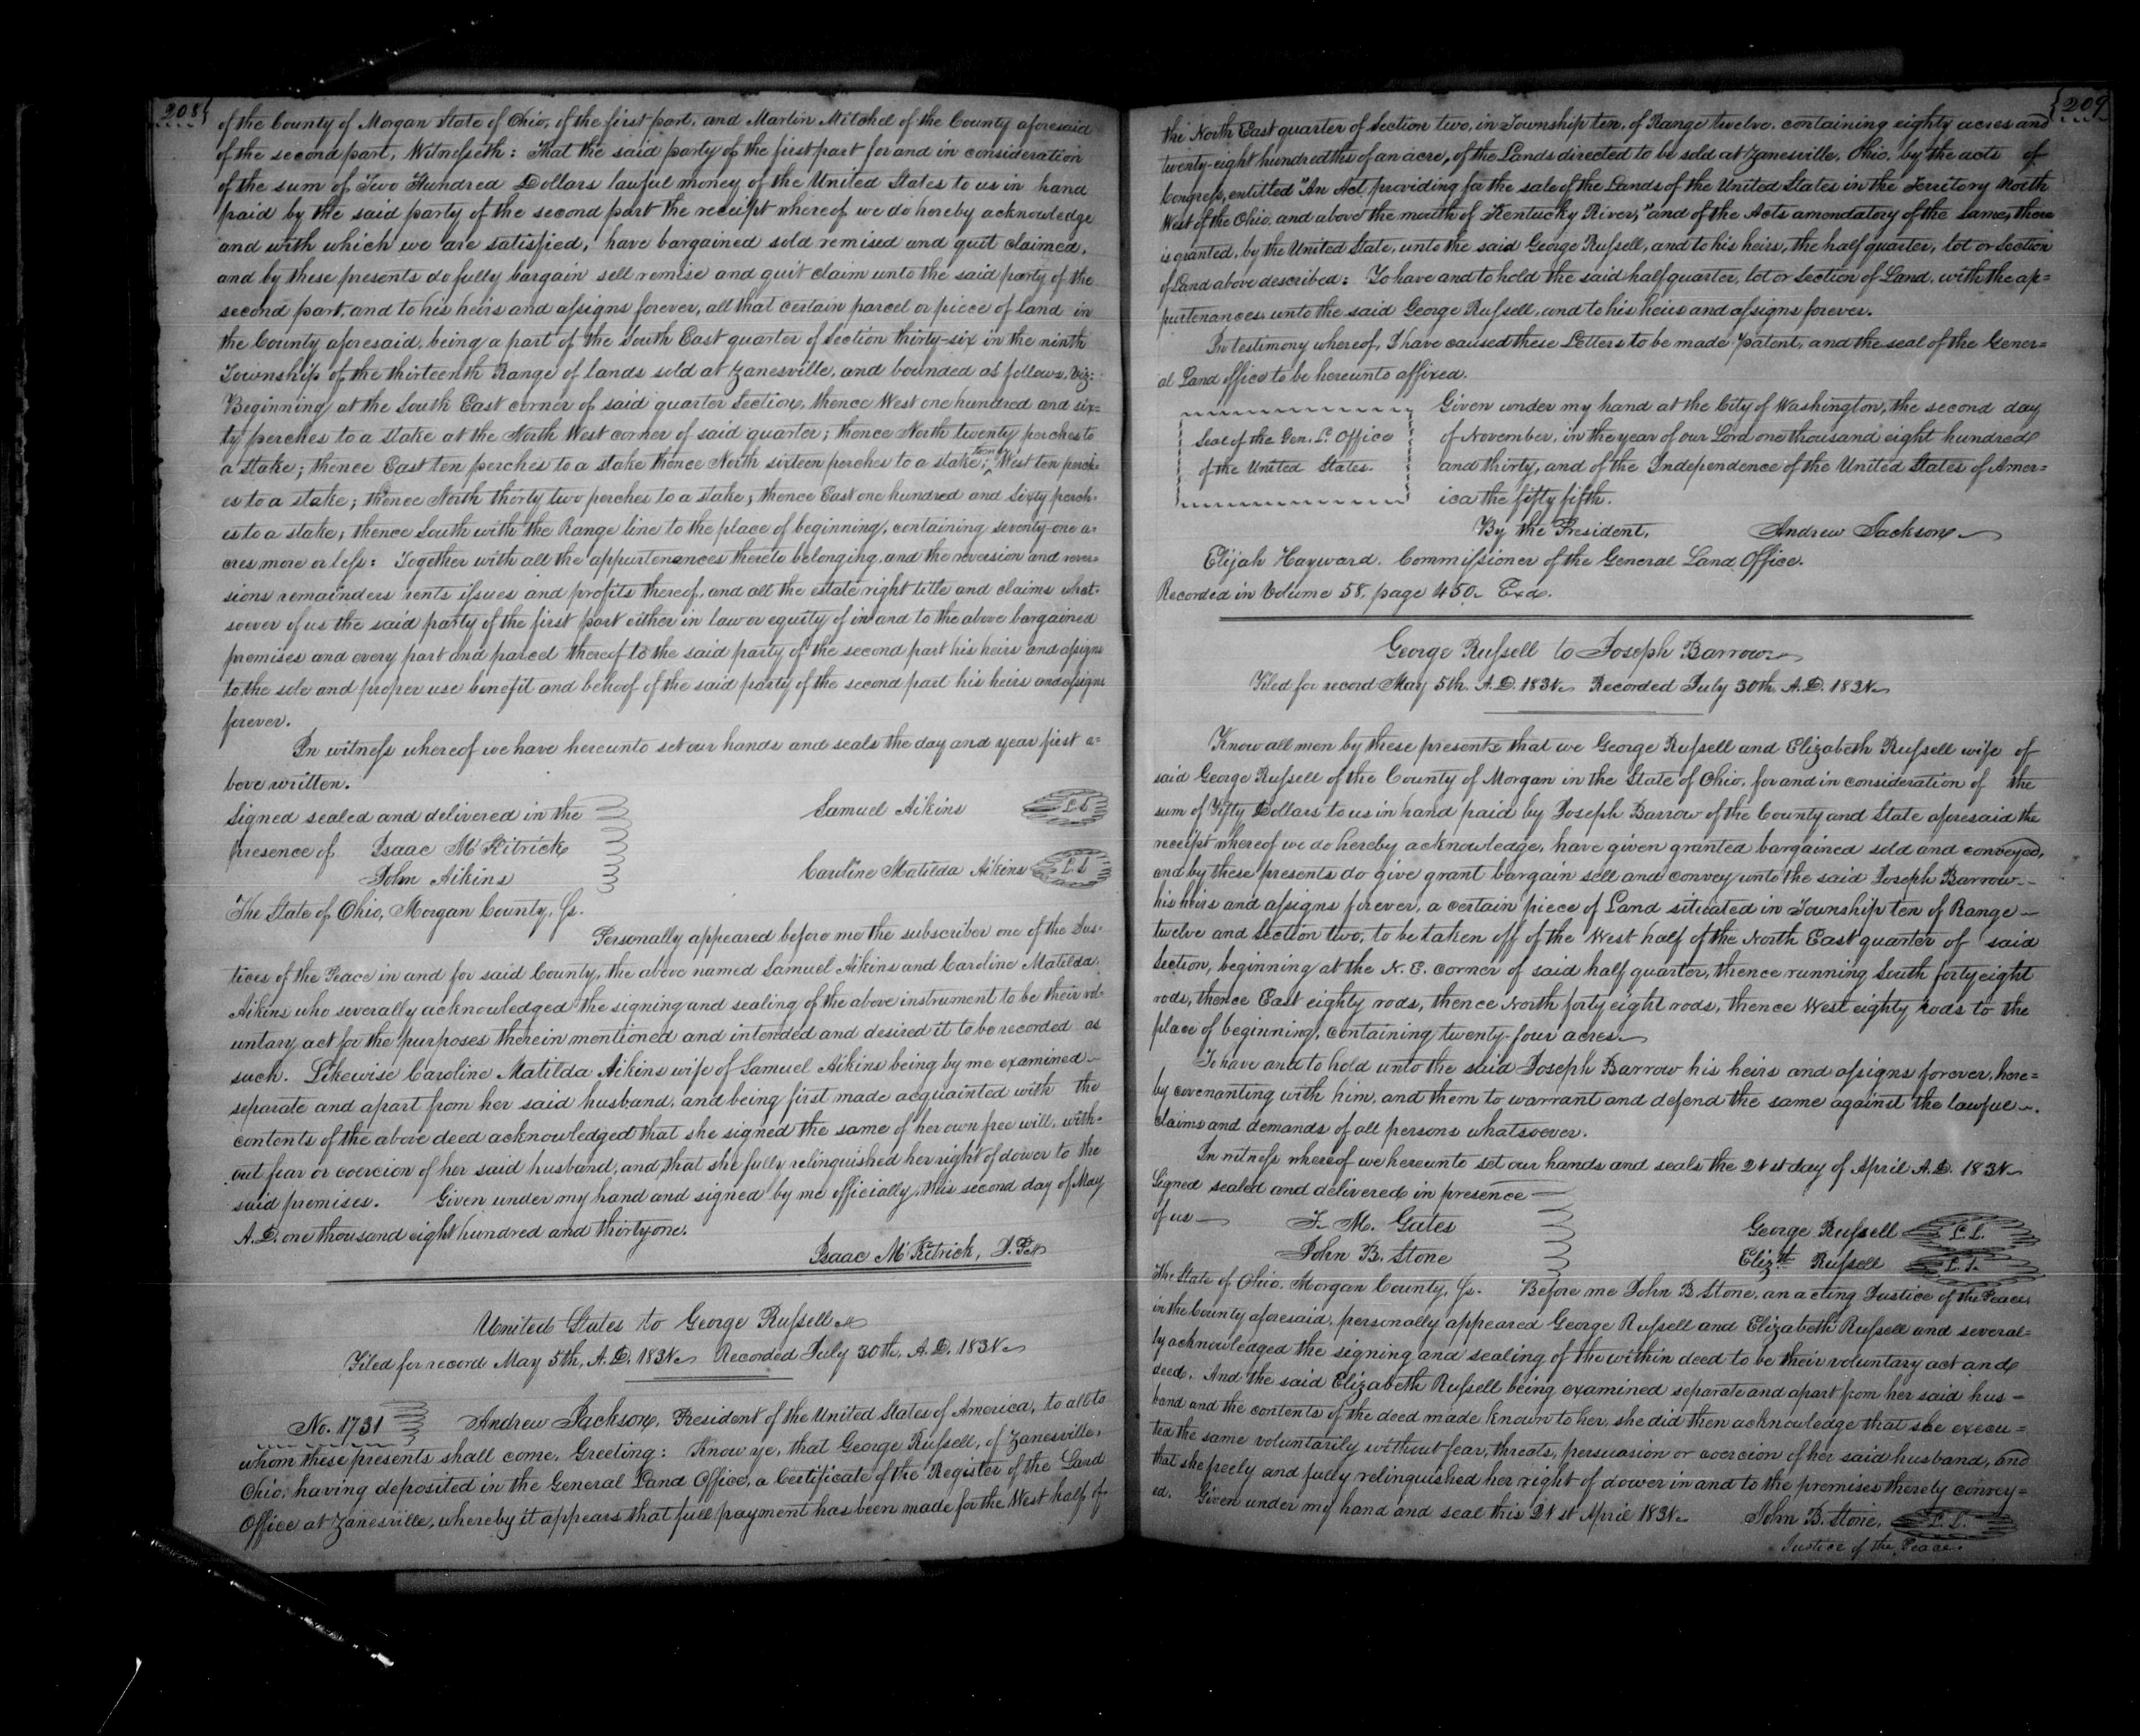 208
of the County of Morgan State of Ohio, of the first part, and Martin Mitchel of the County aforesaid
of the second part, Witnesseth: That the said party of the first part for and in consideration
of the sum of Two Hundred Dollars lawful money of the United States to us in hand
paid by the said party of the second part the receipt whereof we do hereby acknowledge
and with which we are satisfied, have bargained sold remised and quit claimed,
and by these presents do fully bargain sell remise and quit claim unto the said party of the
second part, and to his heirs and assigns forever, all that certain parcel or piece of land in
the County aforesaid, being a part of the South East quarter of Section thirty-six in the ninth
Township of the thirteenth Range of lands sold at Zanesville, and bounded as follows, Viz:
Beginning at the South East corner of said quarter Section, thence West one hundred and six=
ty perches to a Stake at the North West corner of said quarter; thence North twenty perches to
a Stake; thence East ten perches to a stake thence North sixteen perches to a stake; thence West ten perch=
es to a stake; thence North thirty two perches to a stake; thence East one hundred and Sixty perch=
es to a stake; thence South with the Range line to the place of beginning, containing seventy-one a=
cres more or less: Together with all the appurtenances thereto belonging, and the reversion and rever=
sions remainders rents issues and profits thereof, and all the estate right title and claims what=
soever of us the said party of the first part either in law or equity of in and to the above bargained
premises and every part and parcel thereof to the said party of the second part his heirs and assigns
to the sole and proper use benefit and behoof of the said party of the second part his heirs and assigns
forever.
In witness whereof we have hereunto set our hands and seals the day and year first a=
bove written.
Signed sealed and delivered in the Samuel Aikins L S
presence of Isaac McKitrick
John Aikins Caroline Matilda Aikins L S
The State of Ohio, Morgan County, Ss.
Personally appeared before me the subscriber one of the Jus=
tices of the Peace in and for said County, the above named Samuel Aikins and Caroline Matilda
Aikins who severally acknowledged the signing and sealing of the above instrument to be their vol=
untary act for the purposes therein mentioned and intended and desired it to be recorded as
such. Likewise Caroline Matilda Aikins wife of Samuel Aikins being by me examined
separate and apart from her said husband, and being first made acquainted with the
contents of the above deed acknowledged that she signed the same of her own free will, with=
out fear or coercion of her said husband, and that she fully relinquished her right of dower to the
said premises. Given under my hand and signed by me officially, this second day of May
A.D. one thousand eight hundred and thirty one.
Isaac McKitrick, J. P.
United States to George Russell
Filed for record May 5th, A.D. 1831. Recorded July 30th, A.D. 1831.
No. 1731 Andrew Jackson, President of the United States of America, to all to
whom these presents shall come, Greeting: Know ye, that George Russell, of Zanesville,
Ohio, having deposited in the General Land Office, a Certificate of the Register of the Land
Office at Zanesville, whereby it appears that full payment has been made for the West half of
209
the North East quarter of Section two, in Township ten, of Range twelve, containing eighty acres and
twenty-eight hundredths of an acre, of the Lands directed to be sold at Zanesville, Ohio, by the acts of
Congress, entitled "An Act providing for the sale of the Lands of the United States in the Territory North
West of the Ohio, and above the mouth of Kentucky River," and of the Acts amendatory of the same, there
is granted, by the United State, unto the said George Russell, and to his heirs, the half quarter, lot or Section
of Land above described: To have and to hold the said half quarter, lot or Section of Land, with the ap=
purtenances, unto the said George Russell, and to his heirs and assigns forever.
In testimony whereof, I have caused these Letters to be made Patent, and the seal of the Gener=
al Land office to be hereunto affixed.
Seal of the Gen. L. Office
of the United States.
Given under my hand at the City of Washington, the second day
of November, in the year of our Lord one thousand eight hundred
and thirty, and of the Independence of the United States of Amer=
ica the fifty fifth.
By the President, Andrew Jackson
Elijah Hayward, Commissioner of the General Land Office.
Recorded in Volume 58, page 450. Exd.
George Russell to Joseph Barrow
Filed for record May 5th. A.D. 1831. Recorded July 30th, A.D. 1831.
Know all men by these presents that we George Russell and Elizabeth Russell wife of
said George Russell of the County of Morgan in the State of Ohio, for and in consideration of the
sum of Fifty Dollars to us in hand paid by Joseph Barrow of the County and State aforesaid the
receipt whereof we do hereby acknowledge, have given granted bargained sold and conveyed,
and by these presents do give grant bargain sell and convey unto the said Joseph Barrow
his heirs and assigns forever, a certain piece of Land situated in Township ten of Range
twelve and Section two, to be taken off of the West half of the North East quarter of said
Section, beginning at the N. E. corner of said half quarter, thence running South forty eight
rods, thence East eighty rods, thence North forty eight rods, thence West eighty rods to the
place of beginning, containing twenty-four acres.
To have and to hold unto the said Joseph Barrow his heirs and assigns forever, here=
by covenanting with him, and them to warrant and defend the same against the lawful
claims and demands of all persons whatsoever.
In witness whereof we hereunto set our hands and seals the 21st day of April A.D. 1831.
Signed sealed and delivered in presence
of us T. M. Gates George Russell L. S.
John B. Stone Elizth Russell L. S.
The State of Ohio, Morgan County, Ss. Before me John B Stone, an acting Justice of the Peace,
in the County aforesaid, personally appeared George Russell and Elizabeth Russell and several=
ly acknowledged the signing and sealing of the within deed to be their voluntary act and
deed. And the said Elizabeth Russell being examined separate and apart from her said hus=
band and the contents of the deed made known to her, she did then acknowledge that she execu=
ted the same voluntarily without fear, threats, persuasion or coercion of her said husband, and
that she freely and fully relinquished her right of dower in and to the premises thereby convey=
ed. Given under my hand and seal this 21st April 1831. John B. Stone, L. S.
Justice of the Peace.